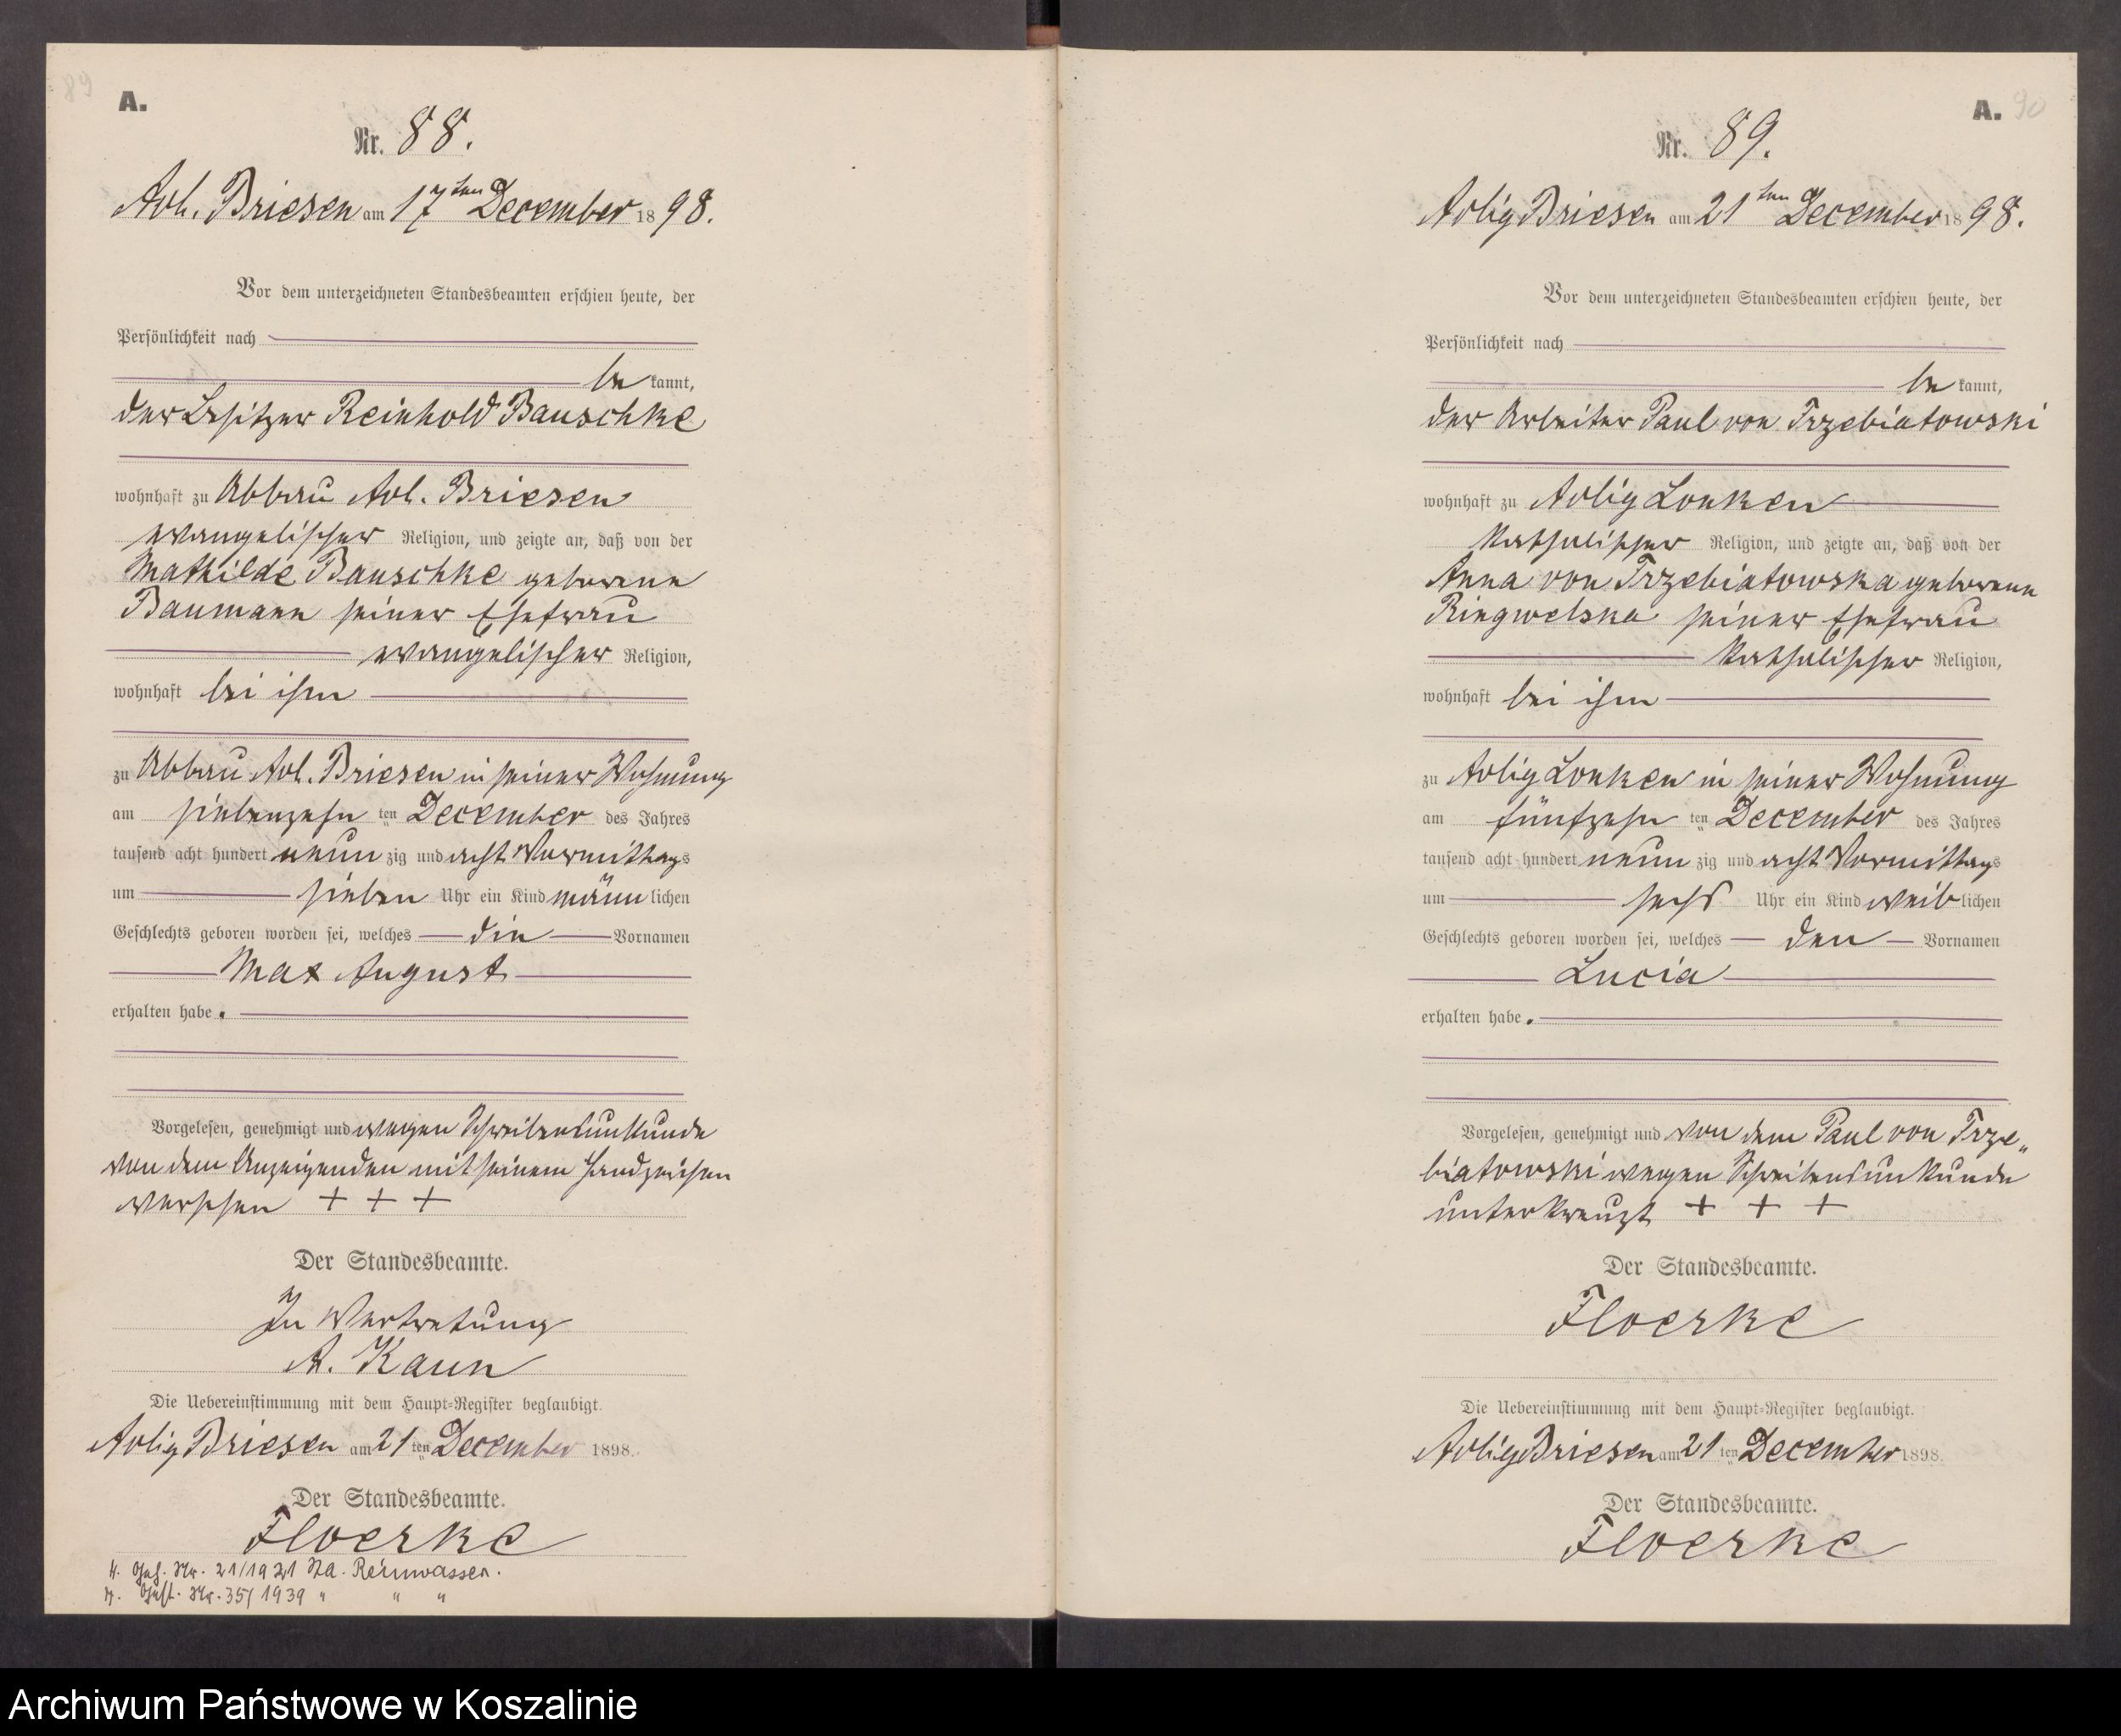 89
A.
Nr. 88.
Adl. Briesen am 17ten December 1898.
Vor dem unterzeichneten Standesbeamten erschien heute, der
Persönlichkeit nach
be kannt,
der Besitzer Reinhold Bauschke
wohnhaft zu Abbau Adl. Briesen
evangelischer Religion, und zeigte an, daß von der
Mathilde Bauschke geborene
Baumann seiner Ehefrau
evangelischer Religion,
wohnhaft bei ihm
zu Abbau Adl. Briesen in seiner Wohnung
am siebenzehn ten December des Jahres
tausend acht hundert neun zig und acht Vormittags
um sieben Uhr ein Kind männ lichen
Geschlechts geboren worden sei, welches die Vornamen
Max August
erhalten habe.
Vorgelesen, genehmigt und wegen Schreibensunkunde
von dem Anzeigenden mit seinem Handzeichen
versehen + + +
Der Standesbeamte.
In Vertretung
A. Kaun
Die Uebereinstimmung mit dem Haupt-Register beglaubigt.
Adlig Briesen am 21 ten December 1898.
Der Standesbeamte.
Floerke
H. Nr. 21/1921 Sta. Reinwasser.
Nr. 35/1939 " " "
A. 90
Nr. 89.
Adlig Briesen am 21ten December 1898.
Vor dem unterzeichneten Standesbeamten erschien heute, der
Persönlichkeit nach
be kannt,
der Arbeiter Paul von Trzebiatowski
wohnhaft zu Adlig Lonken
katholischer Religion, und zeigte an, daß von der
Anna von Trzebiatowska geborene
Ringwelska seiner Ehefrau
katholischer Religion,
wohnhaft bei ihm
zu Adlig Lonken in seiner Wohnung
am fünfzehn ten December des Jahres
tausend acht hundert neun zig und acht Vormittags
um sechs Uhr ein Kind weib lichen
Geschlechts geboren worden sei, welches den Vornamen
Lucia
erhalten habe.
Vorgelesen, genehmigt und von dem Paul von Trze„
biatowski wegen Schreibensunkunde
unterkreuzt + + +
Der Standesbeamte.
Floerke
Die Uebereinstimmung mit dem Haupt-Register beglaubigt.
Adlig Briesen am 21 ten December 1898.
Der Standesbeamte.
Floerke
Archiwum Państwowe w Koszalinie